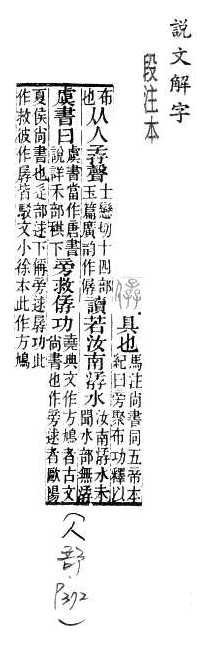 說文解字
段注本
僝 具也 馬注尚書同五帝本
紀曰旁聚布功釋以
布
也 从人孨聲 士戀切十四部
玉篇廣韵作僝 讀若汝南孨水 汝南孨水未
聞水部無孨
虞書曰 虞書當作唐書
說詳禾部稘下 旁救僝功 堯典文作方鳩者古文
尚書也作旁逑者歐陽
夏侯尚書也辵部逑下偁旁逑孱功此
作救彼作孱皆駁文小徐本此作方鳩
(人部 P372)